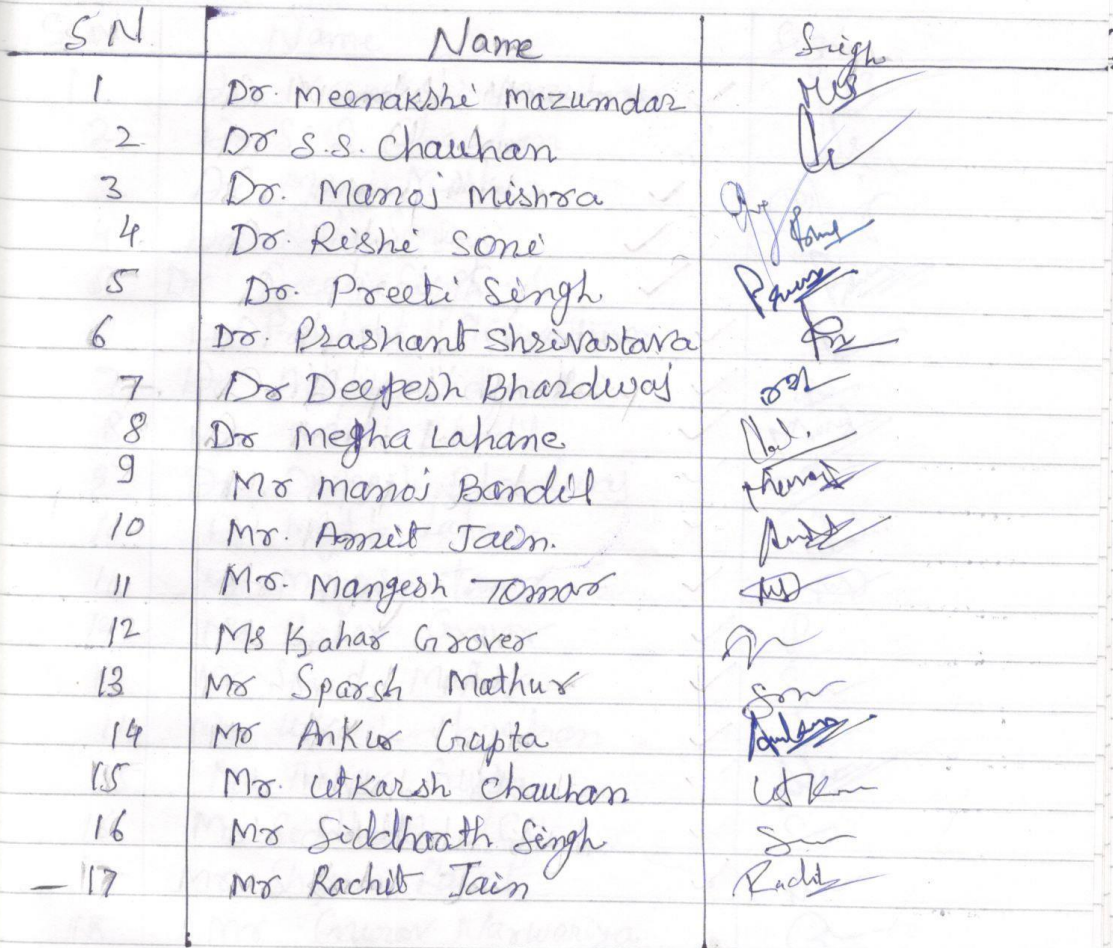 S N Name Sigh
1 Dr. Meenakshi Mazumdar
2 Dr S.S. Chauhan
3 Dr. Manoj Mishra
4 Dr. Rishi Soni
5 Dr. Preeti Singh
6 Dr. Prashant Shrivastava
7 Dr Deepesh Bhardwaj
8 Dr Megha Lahane
9 Mr Manoj Bandil
10 Mr. Amit Jain.
11 Mr. Mangesh Tomar
12 Ms Kahar Grover
13 Mr Sparsh Mathur
14 Mr Ankur Gupta
15 Mr. Utkarsh Chauhan
16 Mr Siddharth Singh
17 Mr Rachit Jain Rachit